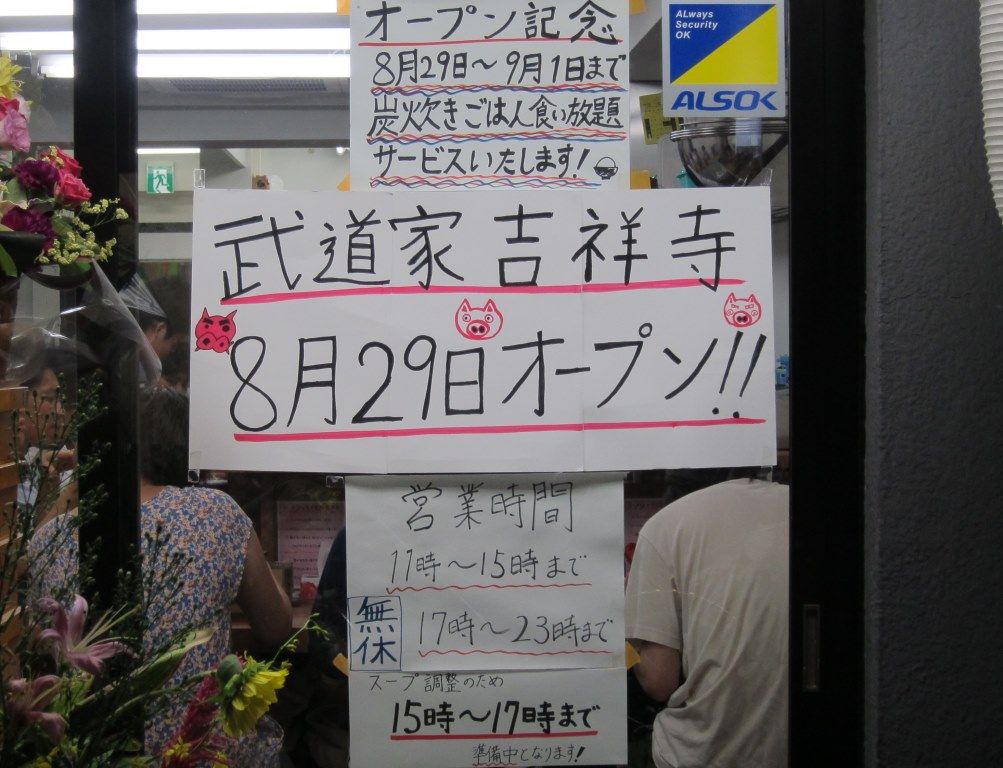 オープン記念
8月29日〜9月1日まで
炭火炊きごはん食い放題
サービスいたします!
ALways
Security
OK
ALSOK
武道家吉祥寺
8月29日オープン!!
営業時間
11時〜15時まで
無休
17時〜23時まで
スープ調整のため
15時〜17時まで
準備中となります!